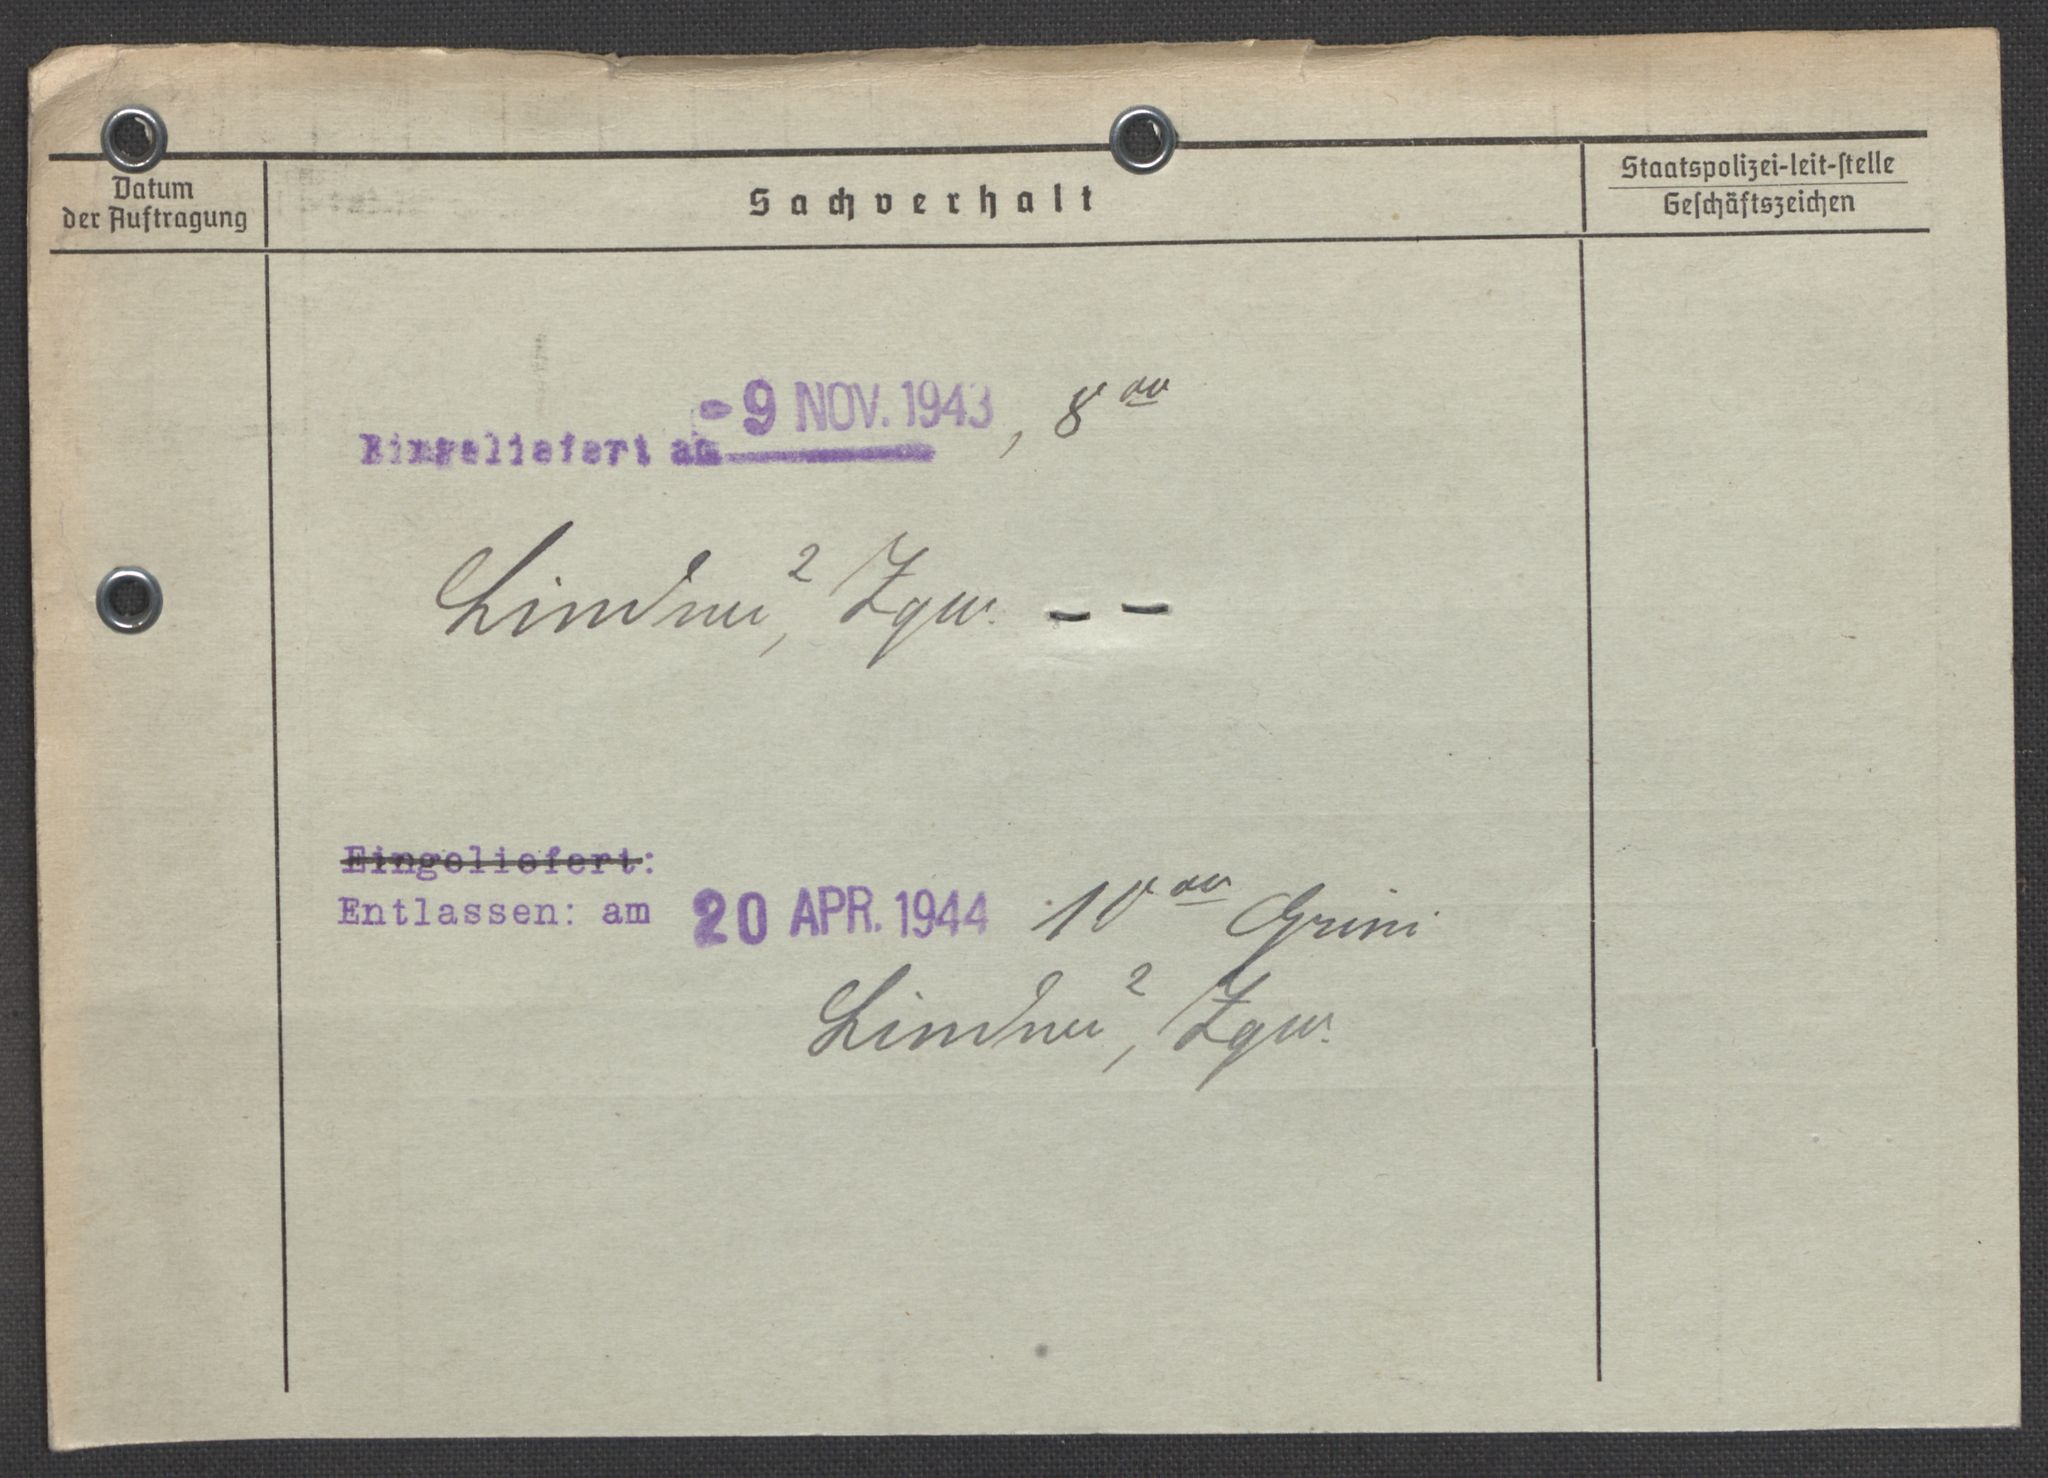 Datum
der Auftragung
Sachverhalt
Staatspolizei-leit-stelle
Geschäftszeichen
Eingeliefert am -9 NOV. 1943, 8 00
Lindner 2, Zgw.
Eingeliefert:
Entlassen: am 20 APR. 1944 10 00 Grini
Lindner 2, Zgw.